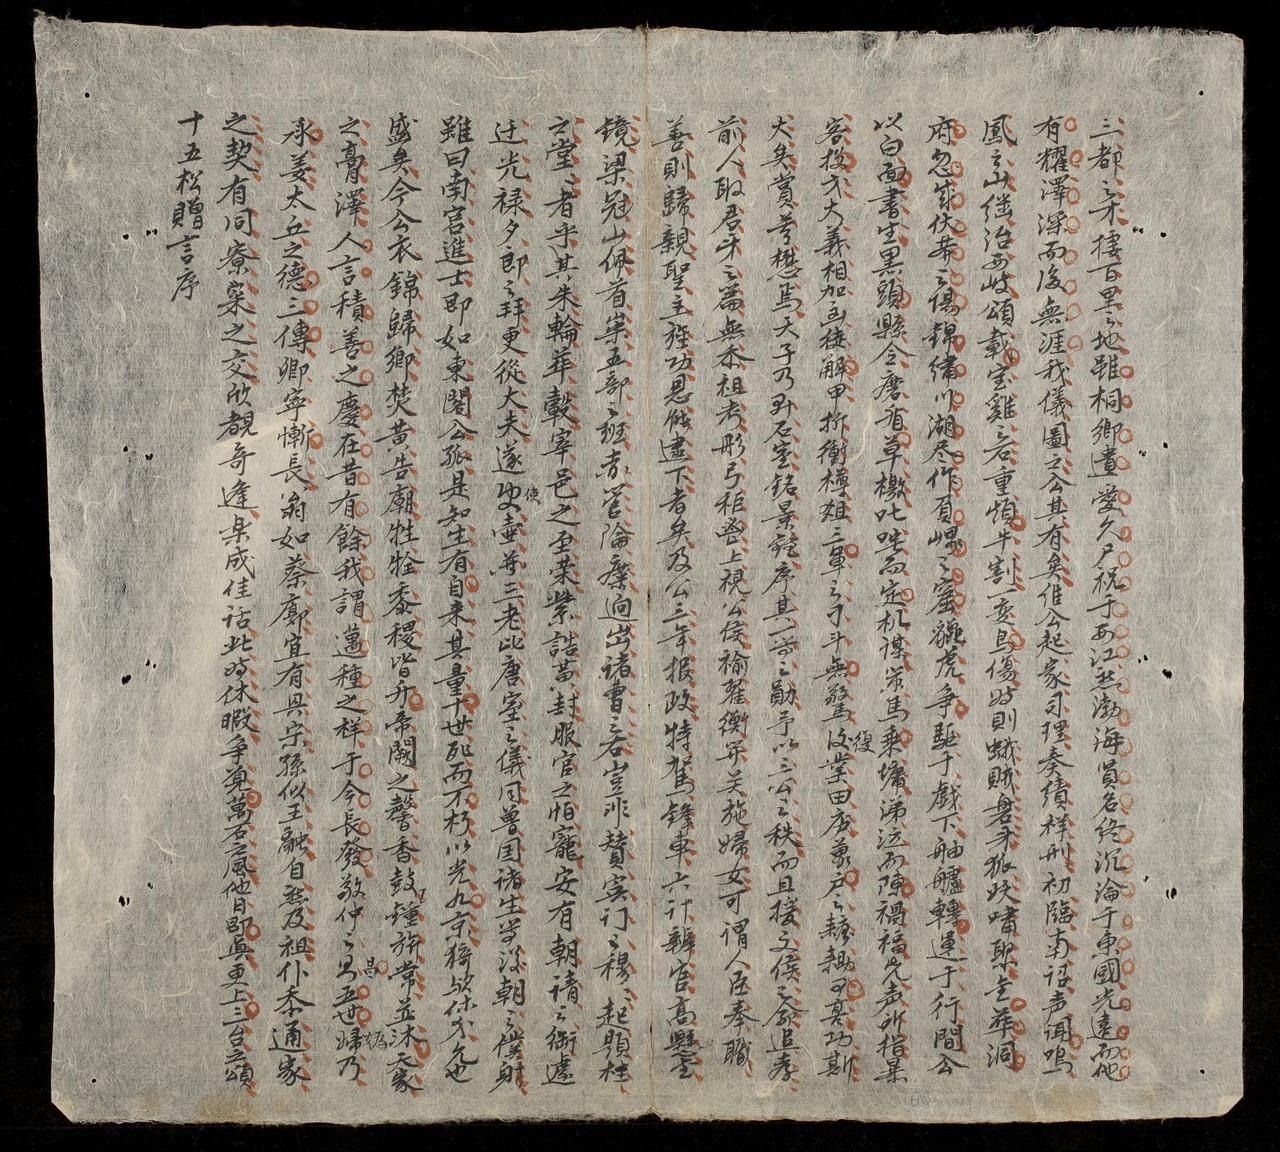 三都之才樓百里之地雖桐鄉遺愛久尸祝于西江然渤海員名終沉淪于東國光遠而他
有耀澤深而後無涯我儀圖之公其有矣惟公起家司理奏績祥刑初臨南詔声聞鳴
鳳之山繼治西岐頌載宝雞之石重煩牛割一変鳥傷始則蛾賊吞牙狼妖嘯聚金華洞
府忽成伏莽之場錦繡川湖尽作負嵎之窟龍虎争駆于戲下舳艫轉運于行間公
以白面書生黒頭縣令磨盾草檄叱咤而定机謀策馬乘墉涕泣而陳禍福先声所指
客投戈大義相加出徒解甲折衝樽俎三軍之刁斗無驚復業田店萬戶之
大矣賞苐懋焉天子乃升石室銘景鐘序其一等之勛予以三公之秩而且接文侯之命追孝
前人取君牙之篇無忝祖考彤弓秬鬯上視公侯褕翟衡笄关施婦女可謂人臣奉職
善則歸親聖主旌功恩能盡下者矣及公三年报政特駕鋒車六计辨官高懸金
鏡梁冠山佩首崇五部之班赤管陥麋迥出諸曹之右豈非賛实门之穆穆起題柱
之堂堂者乎其朱輪華轂宰邑之至荣紫誥苗封服官之怕寵安有朝請之衙遽
迁光禄夕郎之拜更從大夫遂使壷并三老比唐室之儀同曽国諸生等汝朝之僕射
雖曰南宮進士即如東閣公孤是知生有自来其量十世死而不朽以光九京猗歟休哉允也
盛矣今公衣錦歸鄉焚黄告廟牲牷黍稷皆升帝闕之馨香鼓鍾旂常並沐天家
之膏澤人言積善之慶在昔有餘我謂邁種之祥于今長發敬仲之昌五世歸乃
承姜太丘之德三傳卿寧慚長翁如蔡廓宜有興宗孫似王融自然及祖仆忝通家
之契有同寮寀之交欣覩奇逢樂成佳話此时休暇争覓萬石之風他日即真更上三台之頌
十五松贈言序